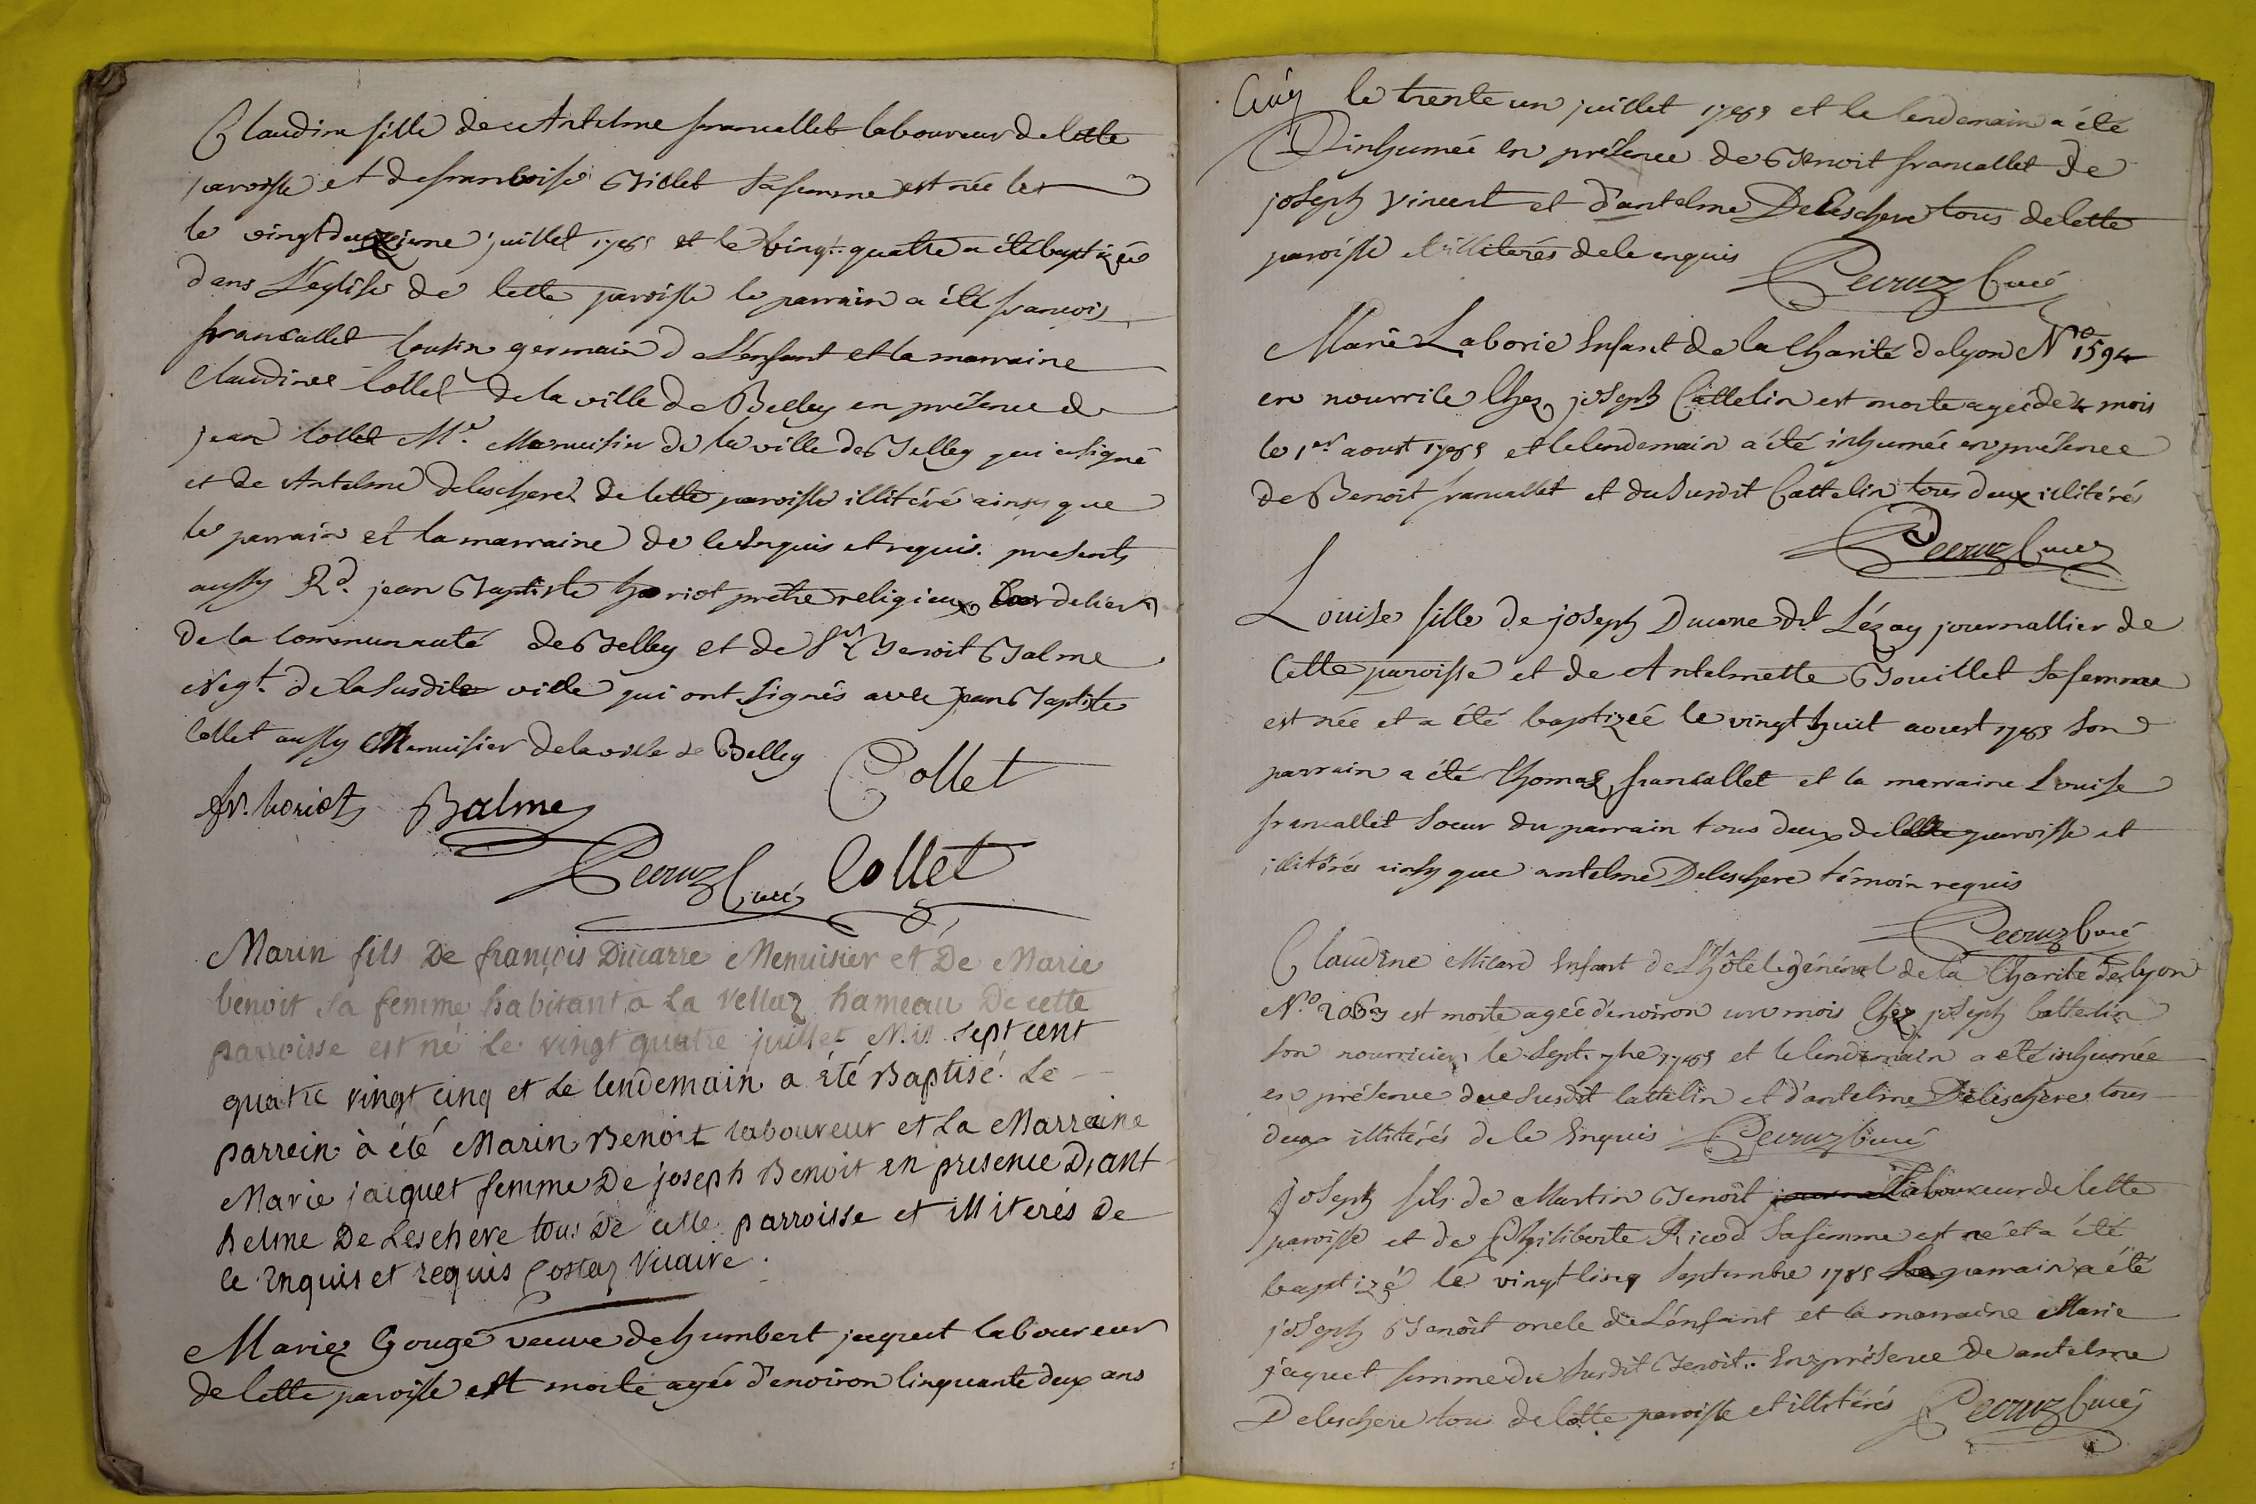 Claudine fille de Antelme francallet laboureur de cette
paroisse et de francoise Billet sa femme est née le
le vingt deuxieme juillet 1785 et le vingt quatre a été baptizée
dans L'eglise de cette paroisse le parrain a été francois
francallet cousin germain d L'énfant et la marraine
Claudine Collet de la ville de Belley en présence de
jean Collet M.e Menuisier de la ville de Belley qui a signé
et de Antelme delescheres de cette paroisse illitéré ainsy que
le parrain et la marraine de ce enquis et requis. presents
aussy R.d jean Baptiste horiot pretre religieux Cordelier
de la communauté de Belley et de S.r Benoit Balme
Negt. de la susdite ville qui ont signés avec jean Baptiste
Collet aussy Menuisier de la ville de Belley
Collet
fr. horiot Balme
Decruz Curé Collet
Marin fils De françois Ducarre Menuisier et De Marie
benoit sa femme habitant a La Vellaz hameau De cette
parroisse est né Le vingt quatre juillet Mil sept cent
quatre vingt cinq et Le lendemain a été Baptisé. Le
parrein à été Marin Benoit laboureur et La Marreine
Marie jacquet femme De joseph Benoit en presence D'ant
helme De Leschere tous De cette parroisse et illiterés De
ce Enquis et requis Costaz Vicaire.
Marie Gougé veuve de humbert jaquet laboureur
de cette paroisse est morte agée d'environ cinquante deux ans
le trente un juillet 1785 et le lendemain a été
inhumée en présence de Benoit francallet de
joseph vincent et d'antelme Deleschere tous de cette
paroisse illiterés de ce enquis
Decruz Curé
Marie Laborie Enfant de la Charité de lyon N.o 1594
en nourrice Chez joseph Cattelin est morte agée de 4 mois
le 1.er aoust 1785 et le lendemain a été inhumée en présence
de Benoit francallet et du susdit Cattelin tous deux illitérés
Decruz Curé
Louise fille de joseph Ducrue dit Lézay journallier de
Cette paroisse et de Antelmette Bouillet sa femme
est née et a été baptizeé le vingt huit aoust 1785 son
parrain a été thomas francallet et la marraine Louise
francallet soeur du parrain tous deux de cette paroisse et
illitérés ainsy que antelme Deleschere témoin requis
Decruz Curé
Claudine Milard Enfant de L'hôtel général de la Charité de lyon
N.o est morte agée d'environ un mois Chez joseph Cattelin
son nourricier le sept. 7bre 1785 et le lendemain a été inhumée
en présence du susdit Cattelin et d'antelme Deleschere tous
deux illitérés de ce Enquis Decruz Curé
joseph fils de Martin Benoit Laboureur de cette
paroisse et de Philiberte Ricod sa femme est né et a été
baptizé le vingt cinq septembre 1785 parrain a été
joseph Benoit oncle de L'énfant et la marraine Marie
jaquet femme du susdit Benoit. En présence de antelme
Deleschere tous de cette paroisse et illitérés Decruz Curé